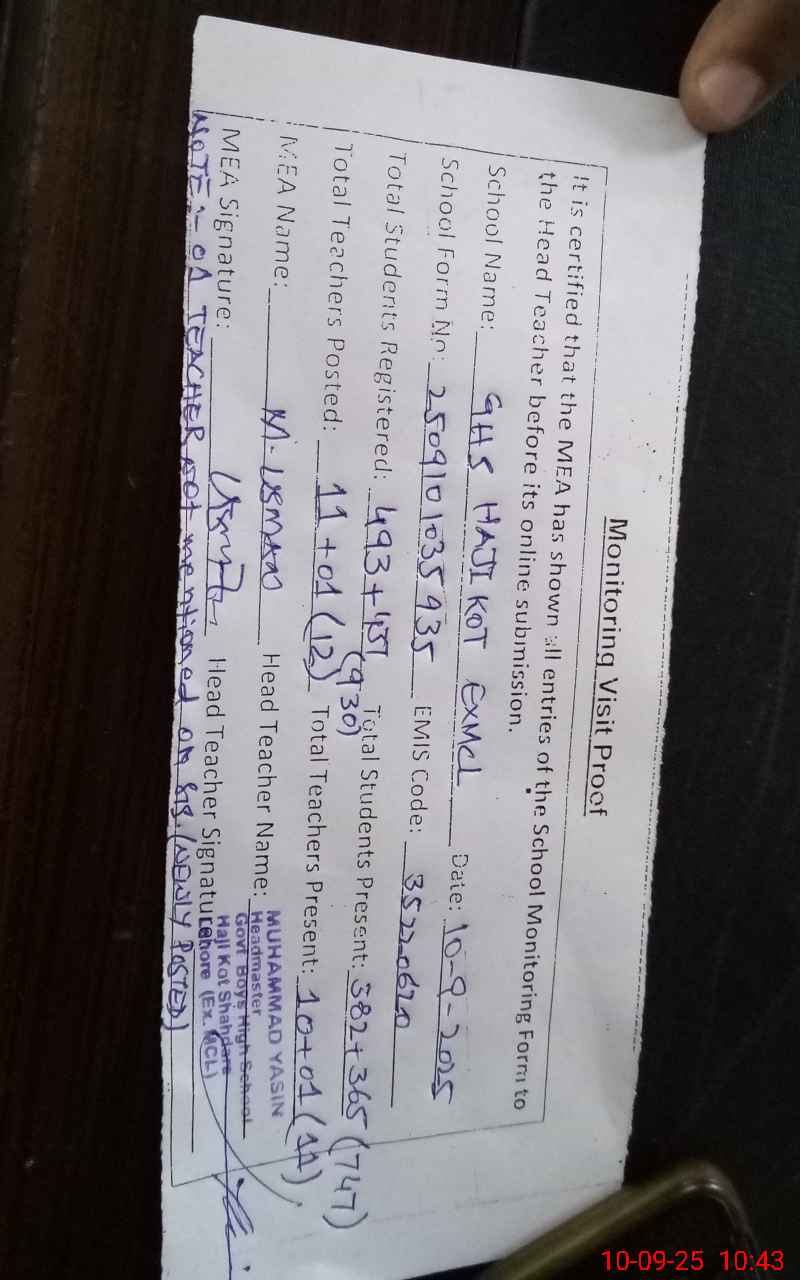 Monitoring Visit Proof
It is certified that the MEA has shown all entries of the School Monitoring Form to
the Head Teacher before its online submission.
School Name: GHS HAJI KOT EXMCL Date: 10-9-2025
School Form No: 2509101035935 EMIS Code: 35220620
Total Students Registered: 493+437 (930) Total Students Present: 382+365 (747)
Total Teachers Posted: 11+01 (12) Total Teachers Present: 10+01 (11)
MEA Name: M. USMAN Head Teacher Name: MUHAMMAD YASIN
Headmaster
Govt Boys High School
Haji Kot Shahdara
Lahore (Ex. MCL)
MEA Signature: Head Teacher Signature
NOTE:- 01 TEACHER NOT mentioned on SIS. (NEWLY POSTED)
10-09-25 10:43